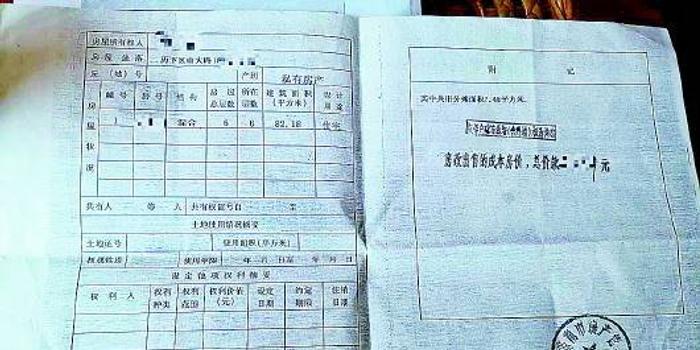 房屋所有权人
房屋坐落 历下区山大路
丘（地）号 产别 私有房产
房屋状况
幢号 房号 结构 房屋总层数 所在层数 建筑面积（平方米） 设计用途
混合 6 6 82.18 住宅
共有人 等 人 共有权证号自 至
土地使用情况摘要
土地证号 使用面积（平方米）
权属性质 使用年限 年 月 日至 年 月 日
设定他项权利摘要
权利人 权利种类 权利范围 权利价值（元） 设定日期 约定期限 注销日期
附 记
其中共用分摊面积 平方米.
房改出售的成本房价，总价款 元